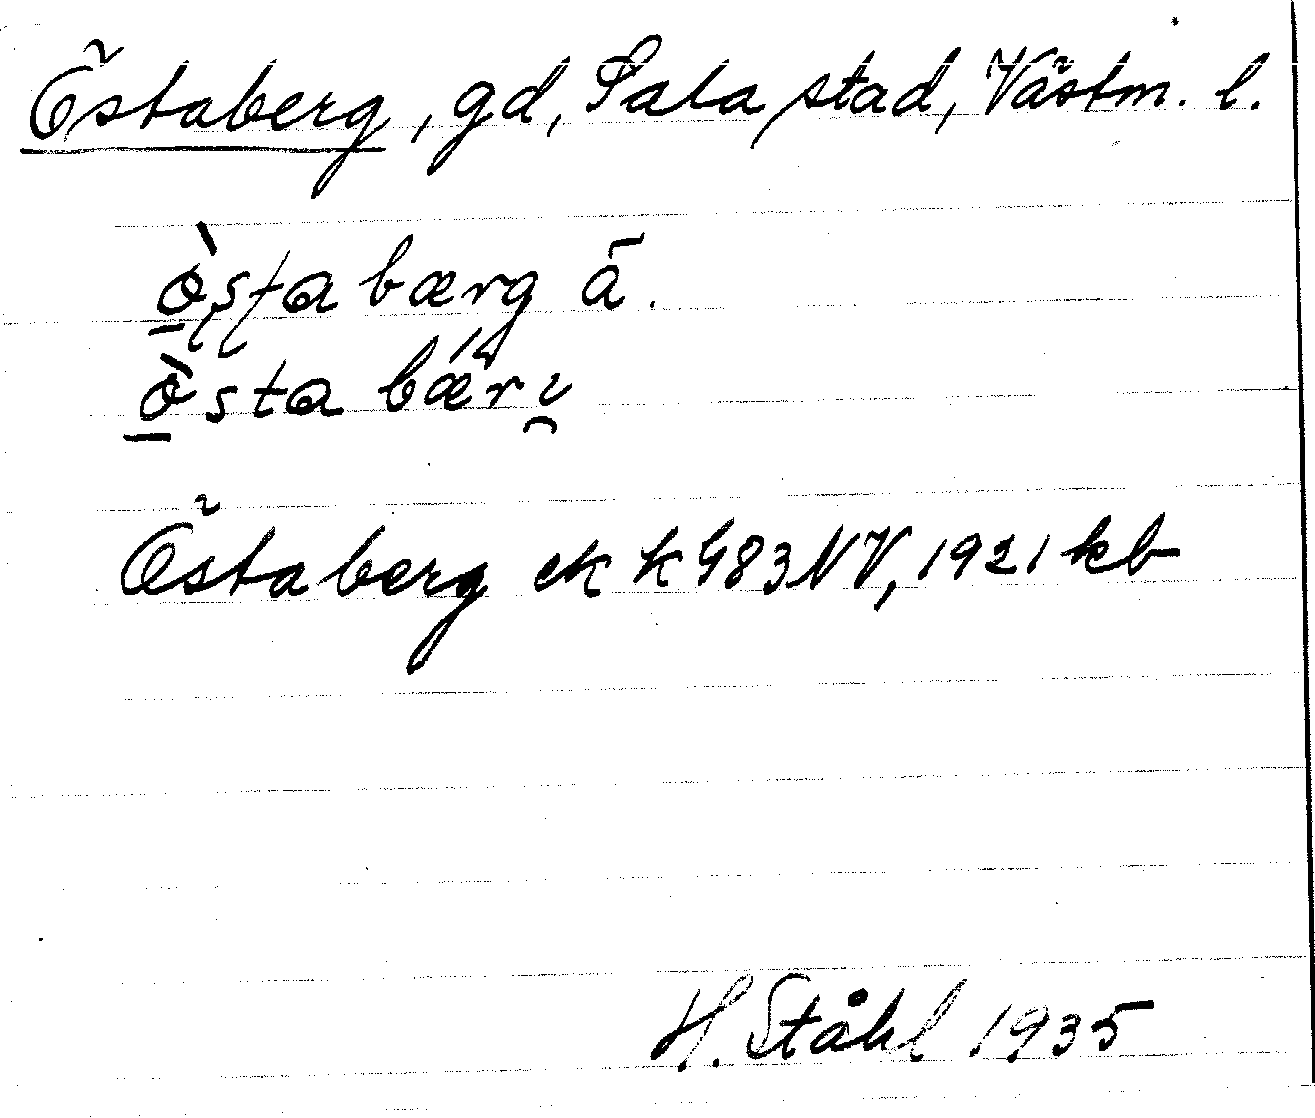 Östaberg, gd, Sala stad, Västm. l.
ò̱stabærg ā.
ò̱sta bær
Östaberg ek k 483 NV, 1921 kb
H. Ståhl 1935